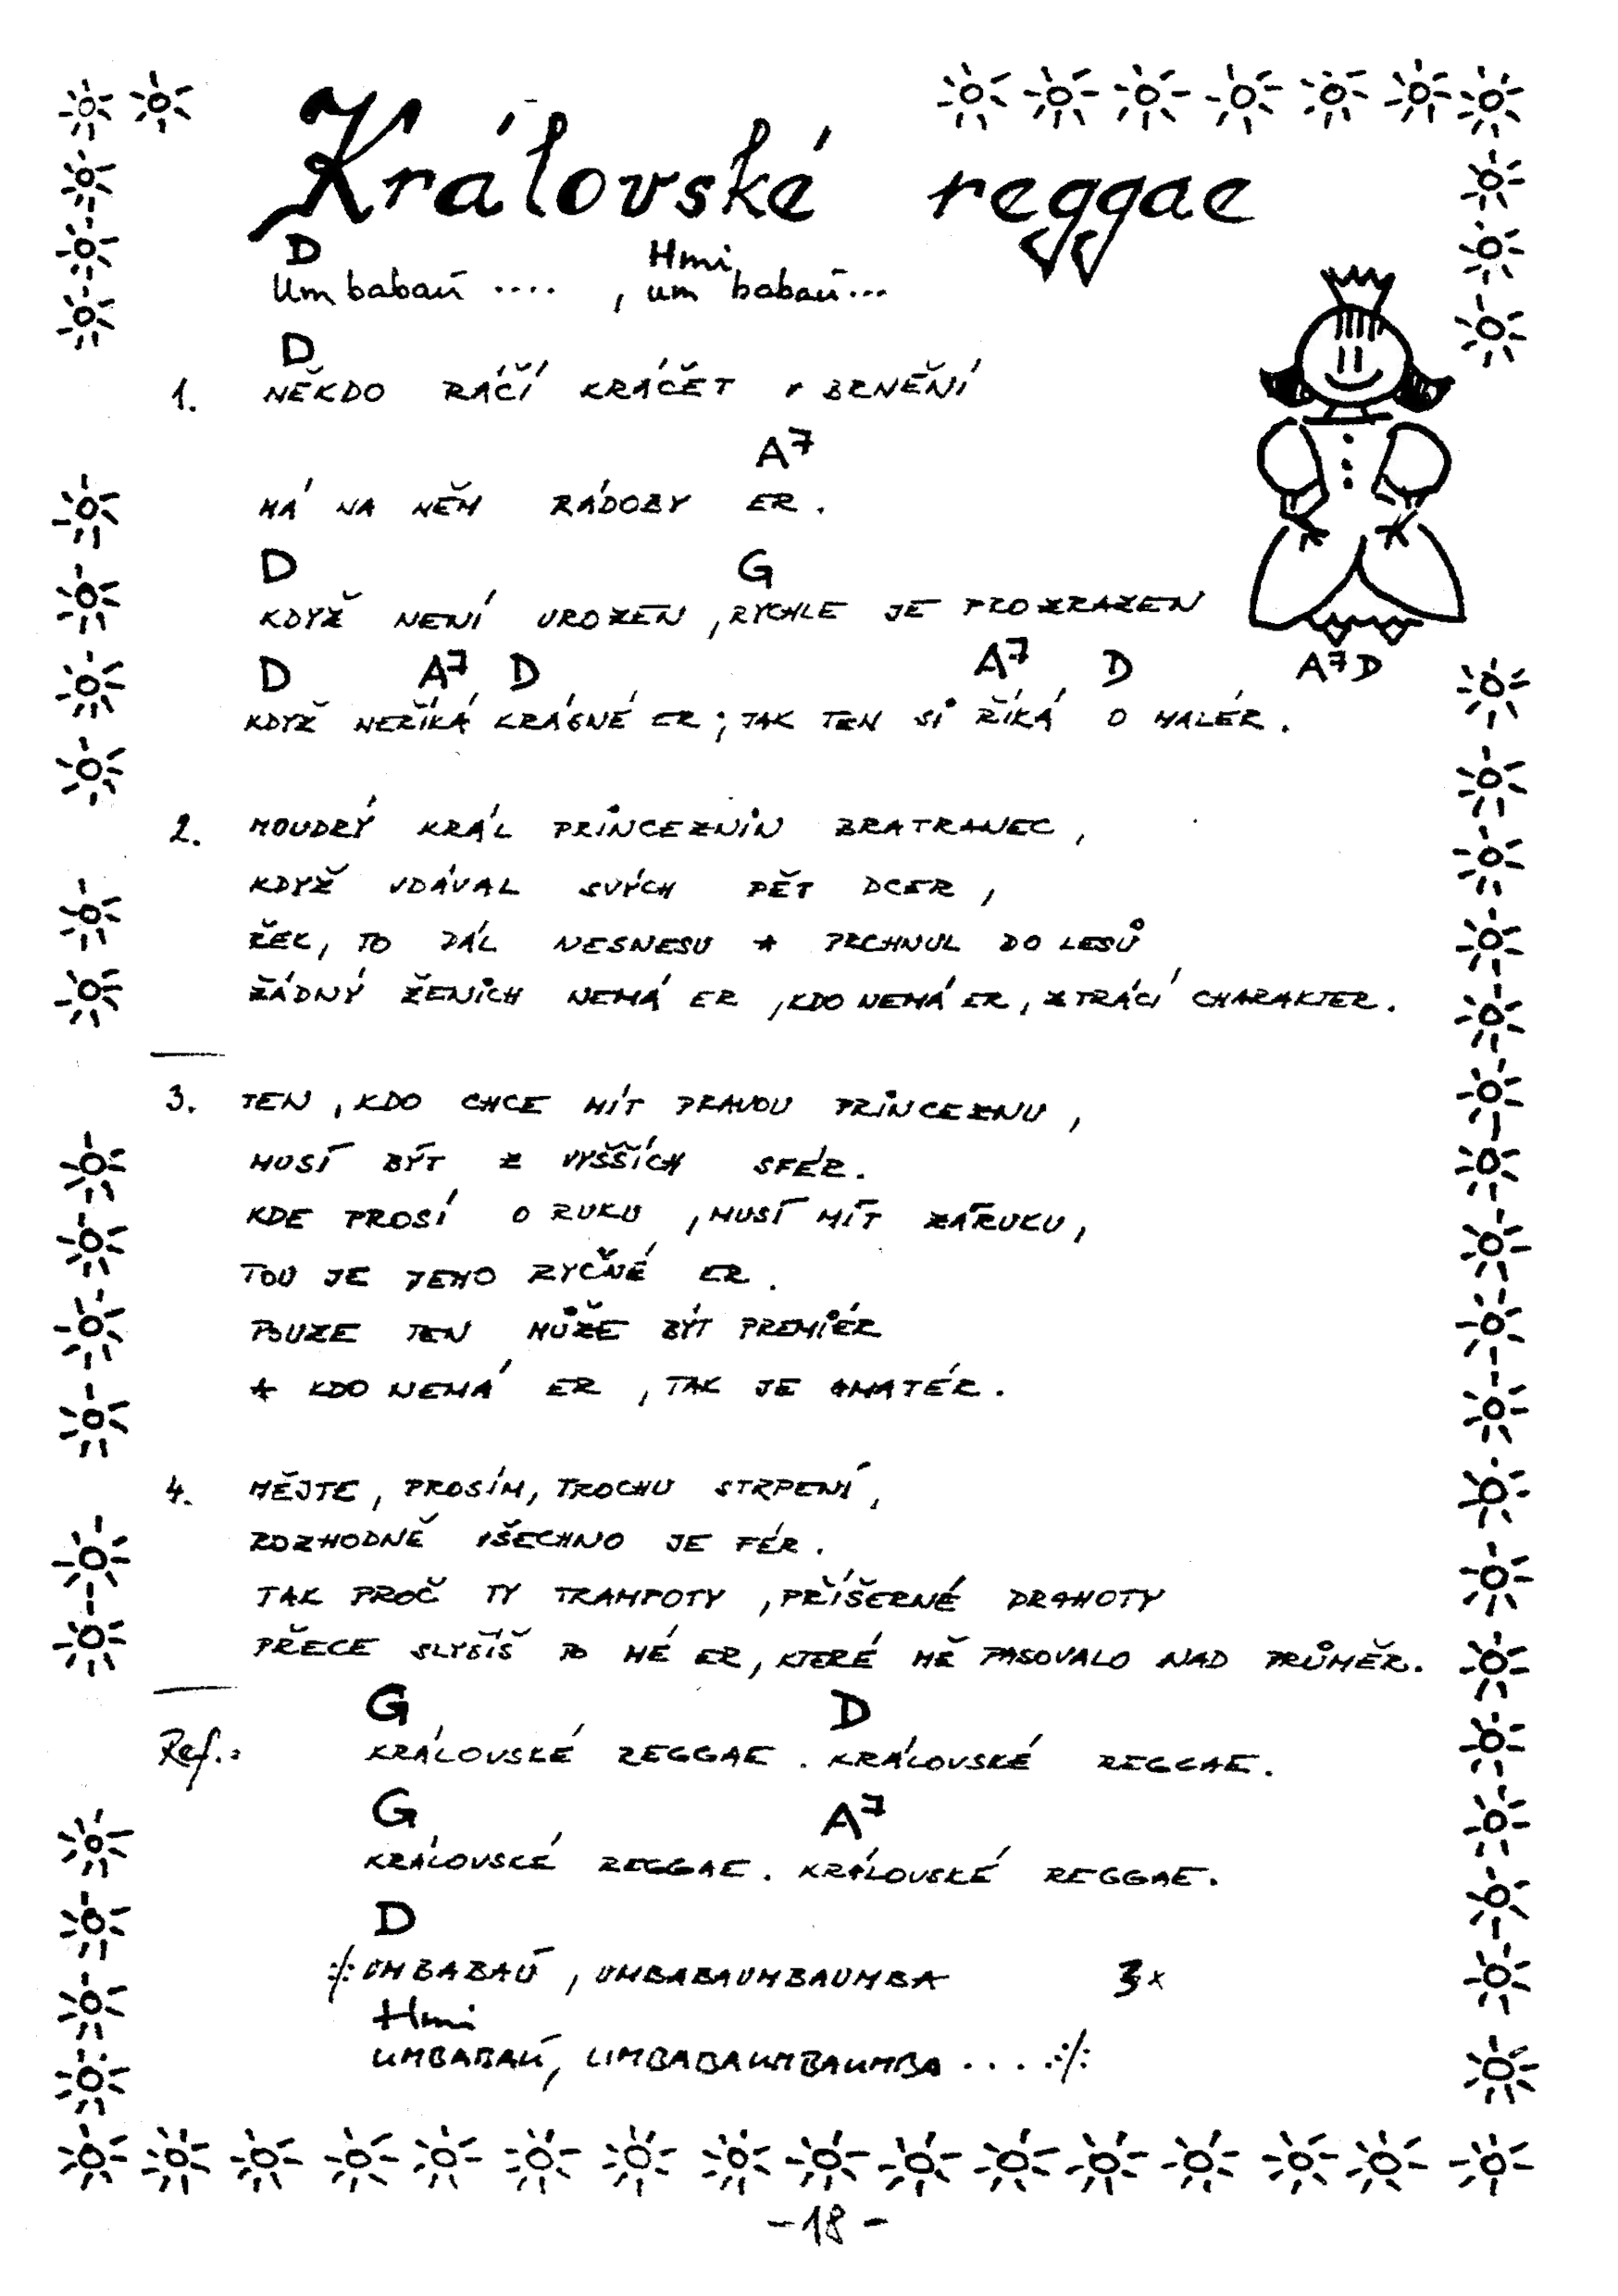 Královské reggae
D Hmi
Um babaú .... , um babaú...
D
1. NĚKDO RÁČÍ KRÁČET V BRNĚNÍ
A7
MÁ NA NĚM RÁDOBY ER.
D G
KDYŽ NENÍ UROZEN, RYCHLE JE PROZRAZEN
D A7 D A7 D A7 D
KDYŽ NEŘÍKÁ KRÁSNÉ ER; TAK TEN SI ŘÍKÁ O MALÉR.
2. MOUDRÝ KRÁL PRINCEZNIN BRATRANEC,
KDYŽ VDÁVAL SVÝCH PĚT DCER,
ŘEK, TO DÁL NESNESU A PRCHNUL DO LESŮ
ŽÁDNÝ ŽENICH NEMÁ ER, KDO NEMÁ ER, ZTRÁCÍ CHARAKTER.
3. TEN, KDO CHCE MÍT PRAVOU PRINCEZNU,
MUSÍ BÝT Z VYŠŠÍCH SFÉR.
KDE PROSÍ O RUKU, MUSÍ MÍT ZÁRUKU,
TOU JE JEHO RYČNÉ ER.
POUZE TEN MŮŽE BÝT PREMIÉR
A KDO NEMÁ ER, TAK JE AMATÉR.
4. MĚJTE, PROSÍM, TROCHU STRPENÍ,
ROZHODNĚ VŠECHNO JE FÉR.
TAK PROČ TY TRAMPOTY, PŘÍŠERNÉ DRAHOTY
PŘECE SLYŠÍŠ TO MÉ ER, KTERÉ MĚ PASOVALO NAD PRŮMĚR.
G D
Ref.: KRÁLOVSKÉ REGGAE. KRÁLOVSKÉ REGGAE.
G A7
KRÁLOVSKÉ REGGAE. KRÁLOVSKÉ REGGAE.
D
:/: UMBABAÚ, UMBABAUMBAUMBA 3x
Hmi
UMBABAÚ, UMBABAUMBAUMBA .... :/:
-18-